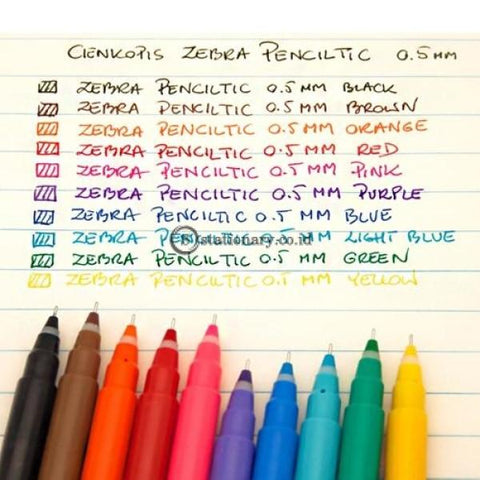 CIENKOPIS ZEBRA PENCILTIC 0.5 MM
ZEBRA PENCILTIC 0.5 MM BLACK
ZEBRA PENCILTIC 0.5 MM BROWN
ZEBRA PENCILTIC 0.5 MM ORANGE
ZEBRA PENCILTIC 0.5 MM RED
ZEBRA PENCILTIC 0.5 MM PINK
ZEBRA PENCILTIC 0.5 MM PURPLE
ZEBRA PENCILTIC 0.5 MM BLUE
ZEBRA PENCILTIC 0.5 MM LIGHT BLUE
stationary.co.id
ZEBRA PENCILTIC 0.5 MM GREEN
ZEBRA PENCILTIC 0.5 MM YELLOW